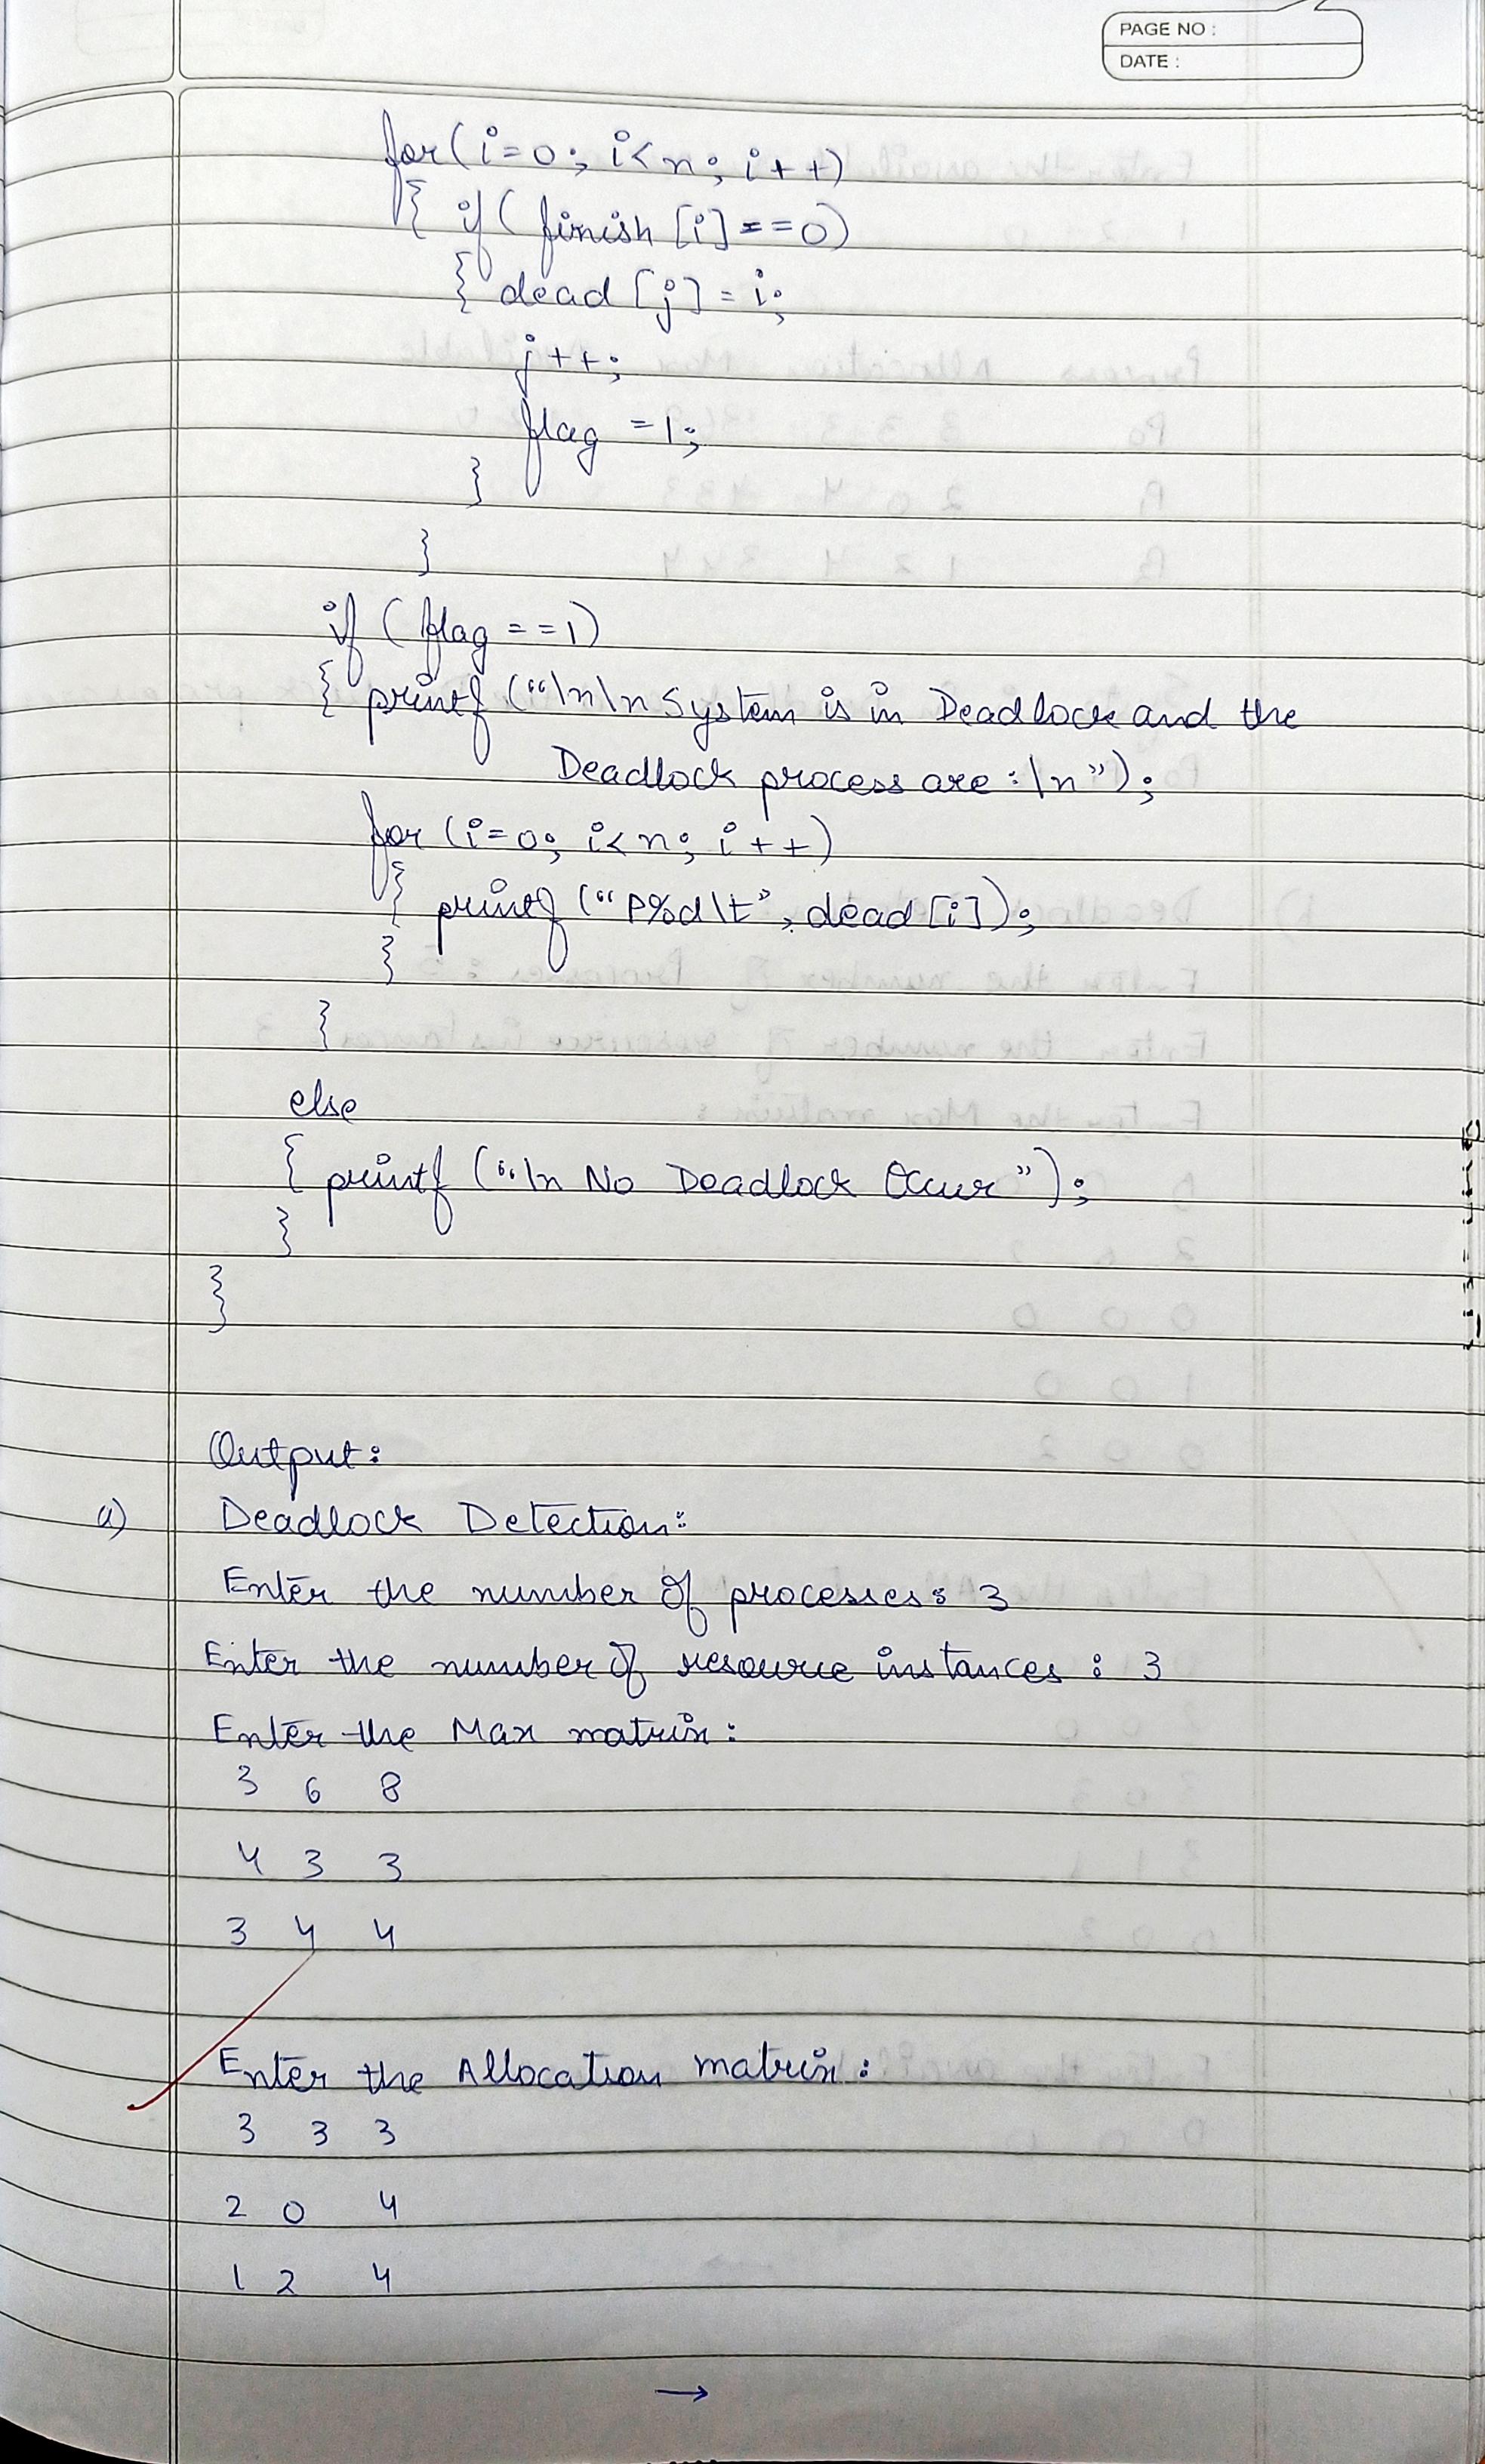 PAGE NO :
DATE :
for(i=0; i<n; i++)
{ if( finish [i]==0)
{ dead [j] = i;
j++;
flag =1;
}
}
if (flag ==1)
{ printf ("\n\n System is in Deadlock and the
Deadlock process are :\n");
for (i=0; i<n; i++)
{ printf ("P%d\t", dead [i]);
}
}
else
{ printf ("\n No Deadlock Occur");
}
}
Output:
a) Deadlock Detection:
Enter the number of processes: 3
Enter the number of resource instances : 3
Enter the Max matrix:
3 6 8
4 3 3
3 4 4
Enter the Allocation matrix:
3 3 3
2 0 4
1 2 4
→